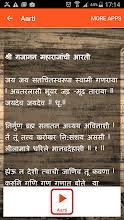 17:14
Aarti
MORE APPS
श्री गजानन महाराजांची आरती
जय जय सतचितस्वरूपा स्वामी गणराया
। अवतरलासी भूवर जड -मूढ ताराया ॥
जयदेव जयदेव ॥ धृ.॥
निर्गुण ब्रह्म सनातन अव्यय अविनाशी ।
ते तू तत्त्व खरोखर निःसंशय अससी ।
लीलामात्रे धरिले मानवदेहासी ॥ १ ॥
होऊ न देशी त्याची जाणिव तू कवणा ।
करूनि गणि गण गणात बोते या
Aarti